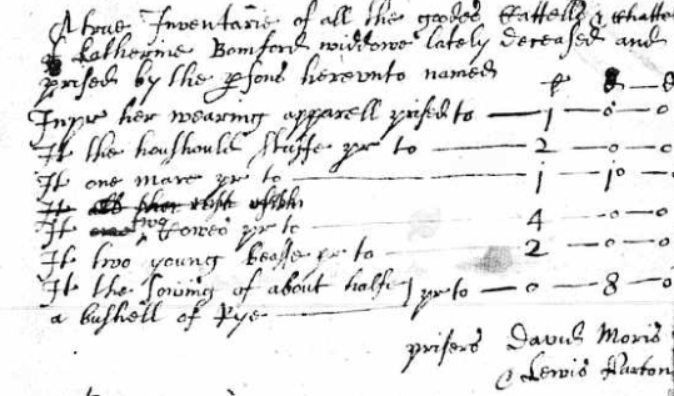 A true Inventarie of all the goodes Cattells & Chatte
of Katherine Bomford widdowe lately deceased and
prised by the psons herevnto named
£ s — d
Inpr her wearing apparell prised to — 1 — 0 — 0
It the houshould stuffe pr to — 2 — 0 — 0
It one mare pr to — 1 — 10 — 0
It
It two Cowes pr to — 4 — 0 — 0
It two young beasse pr to — 2 — 0 — 0
It the sowing of about halfe } pr to — 0 — 8 — 0
a bushell of Rye —
prisers David Moris
Lewis Parton